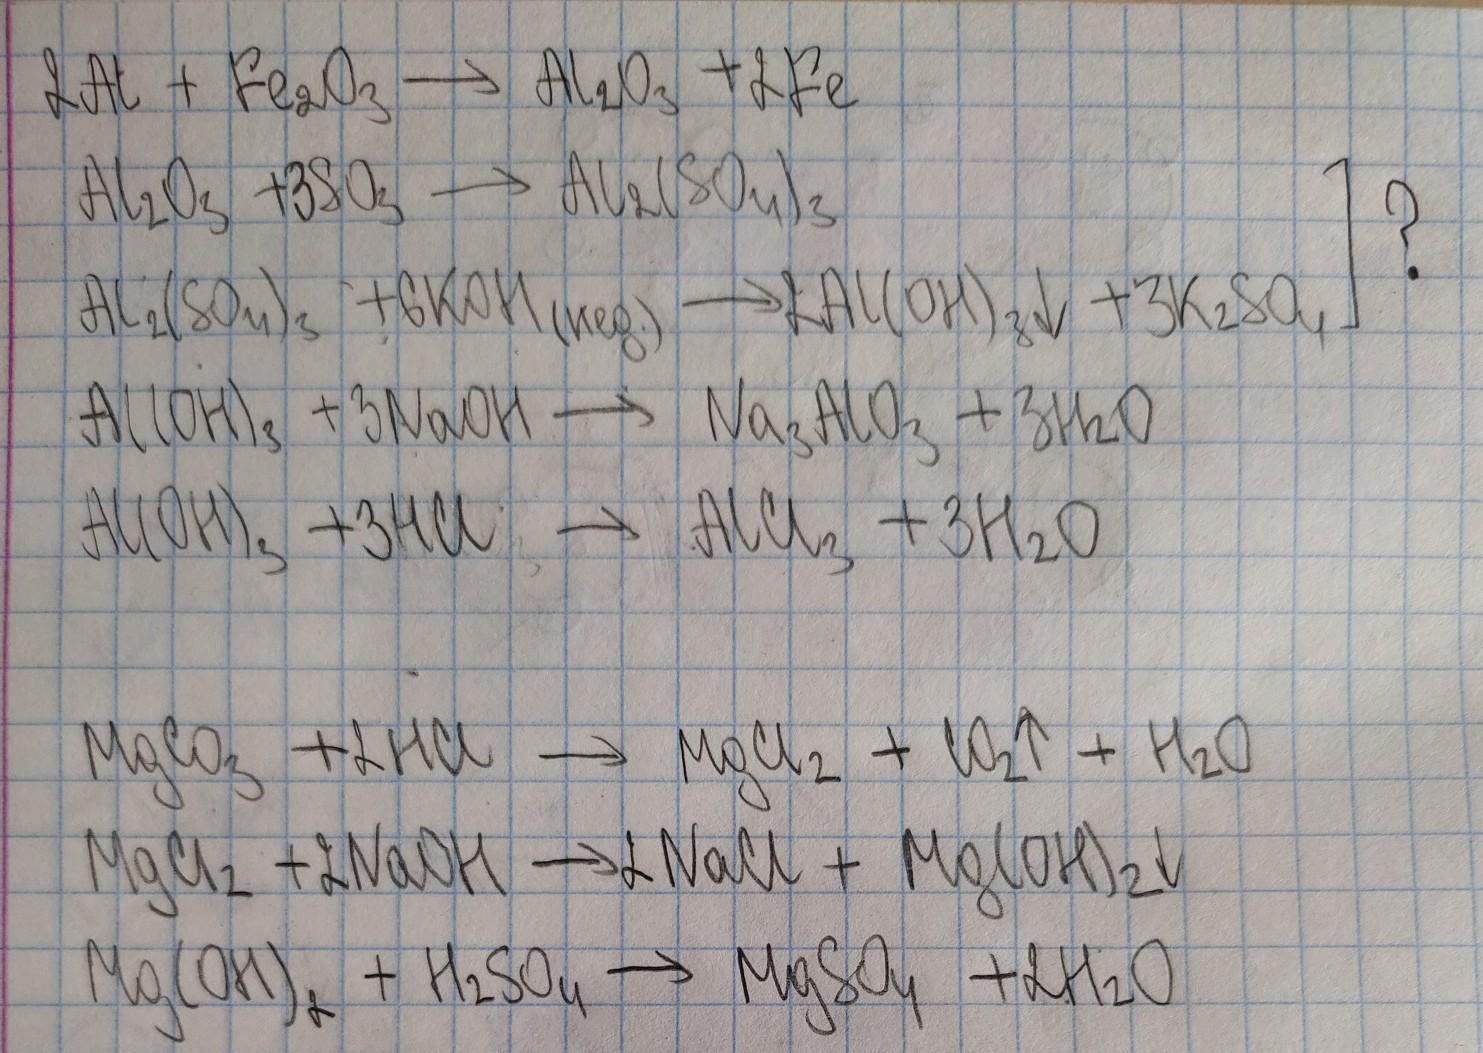 2Al + Fe₂O₃ → Al₂O₃ + 2Fe
Al₂O₃ + 3SO₃ → Al₂(SO₄)₃
Al₂(SO₄)₃ + 6KOH (нед.) → 2Al(OH)₃↓ + 3K₂SO₄ ] ?
Al(OH)₃ + 3NaOH → Na₃AlO₃ + 3H₂O
Al(OH)₃ + 3HCl → AlCl₃ + 3H₂O
MgCO₃ + 2HCl → MgCl₂ + CO₂↑ + H₂O
MgCl₂ + 2NaOH → 2NaCl + Mg(OH)₂↓
Mg(OH)₂ + H₂SO₄ → MgSO₄ + 2H₂O